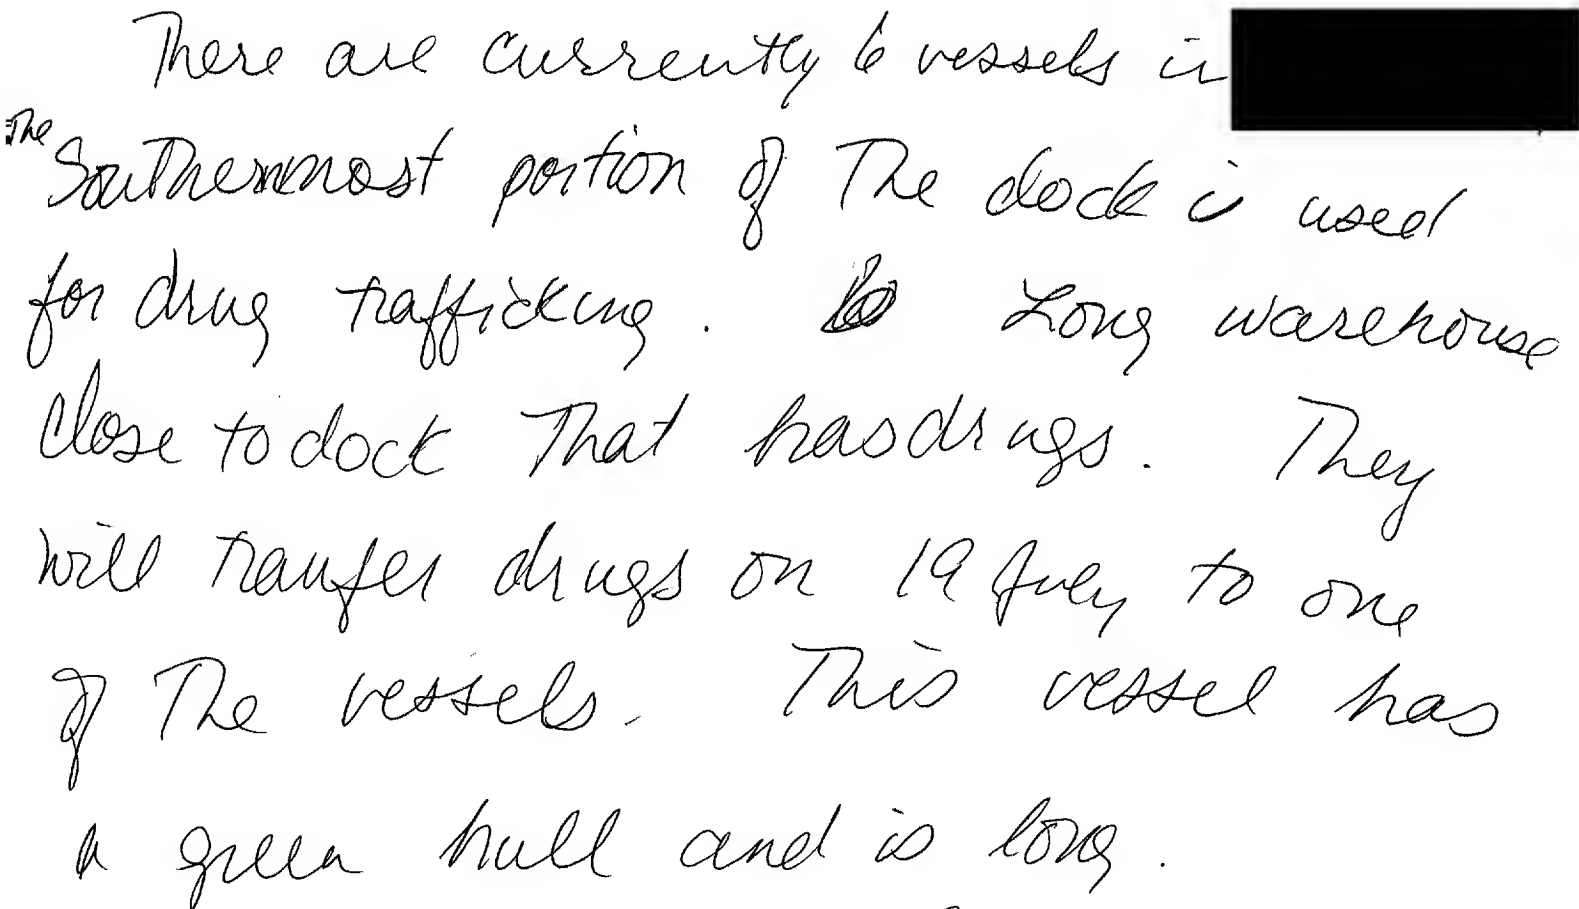 There are currently 6 vessels in
The Southernmost portion of The dock is used
for drug trafficking. Long warehouse
close to dock That has drugs. They
will transfer drugs on 19 July to one
of The vessels. This vessel has
a green hull and is long.